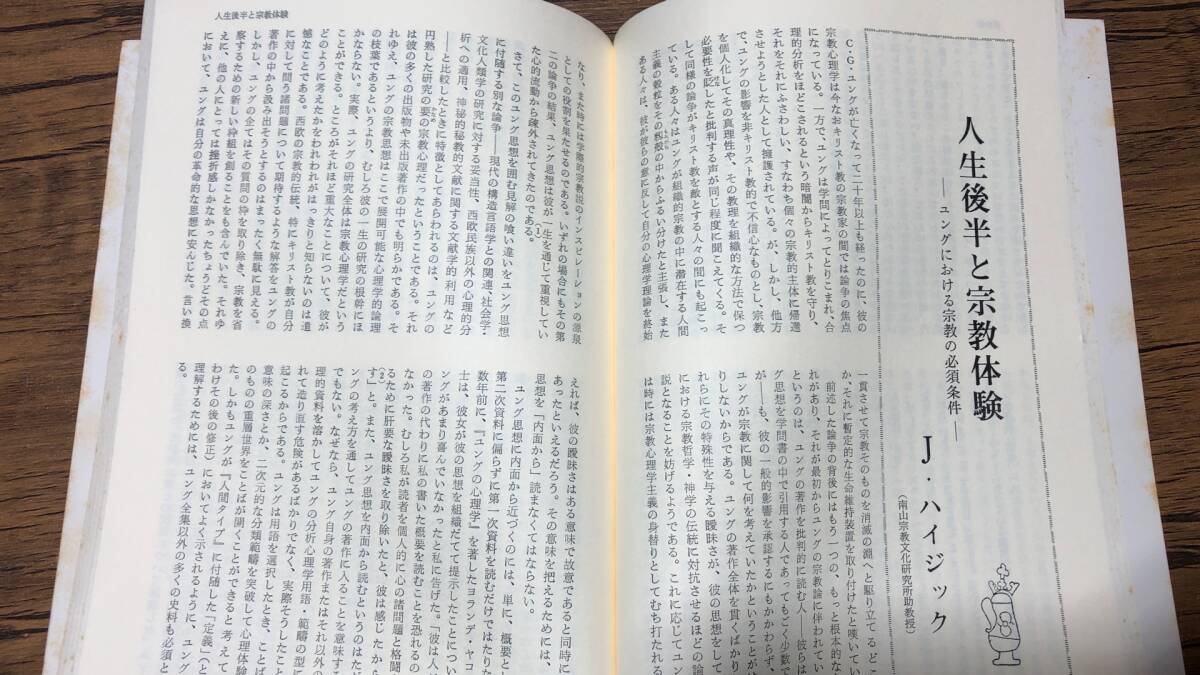 人生後半と宗教体験
人生後半と宗教体験
――ユングにおける宗教の必須条件――
J・ハイジック
（南山宗教文化研究所助教授）
C・G・ユングが亡くなって二十年以上も経ったのに、彼の
宗教心理学は今なおキリスト教の宗教家の間では論争の焦点
になっている。一方で、ユングは学問によってとりこまれ、合
理的分析をほどこされるという暗闇からキリスト教を守り、
それをそれにふさわしい、すなわち個々の宗教的主体に帰還
させようとした人として擁護されている。が、しかし、他方
で、ユングの影響を非キリスト教的で不信心なものとし、宗教
を個人化してその真理性や、その教理を組織的な方法で保つ
必要性を貶したと批判する声が同じ程度に聞こえてくる。そ
して同様の論争がキリスト教を敵とする人々の間にも起こっ
ている。ある人々はユングが組織的宗教の中に潜在する人間
主義の穀粒をその籾殻の中からふるい分けたと主張し、また
ある人々は、彼が彼らの意に反して自分の心理学理論を終始
一貫させて宗教そのものを消滅の淵へと駆り立てるどこ
か、それに暫定的な生命維持装置を取り付けたと嘆いてい
前述した論争の背後にはもう一つの、もっと根本的な
れがあり、それが最初からユングの宗教論に伴われてい
というのは、ユングの著作を批判的に読む人――彼らは
グ思想を学問書の中で引用する人であってもごく少数で
が――も、彼の一般的影響を承認するにもかかわらず、
ユングが宗教に関して何を考えていたかということがは
りしないからである。ユングの著作全体を貫くばかり
れらにその特殊性を与える曖昧さが、彼の思想をして
における宗教哲学・神学の伝統に対抗させるほどの論
説となることを妨げるようである。これに応じてユン
は時には宗教心理学主義の身替りとしてむち打たれる
なり、また時には学際的宗教説のインスピレーションの源泉
としての役割を果たせるのである。いずれの場合にもその第
二の論争の結果、ユング思想は彼が一生を通じて重視してい
た心的流動から疎外されてきたのである。(1)
さて、このユング思想を囲む見解の喰い違いをユング思想
に付随する別な論争――現代の構造言語学との関連、社会学・
文化人類学の研究に対する妥当性、西欧民族以外の心理的分
析への適用、神秘的秘教的文献に関する文献学的利用など
――と比較したときに特徴としてあらわれるのは、ユングの
円熟した研究の要の宗教心理だったということである。それ
は彼の多くの出版物や未出版著作の中でも明らかである。そ
れゆえ、ユングの宗教思想はここで展開可能な心理学的論理
の枝葉であるというより、むしろ彼の一生の研究の根幹にほ
かならない。実際、ユングの研究全体は宗教心理学だという
ことができる。ところがそれほど重大なことについて、彼が
どのように考えたかをわれわれがはっきりと知らないのは遺
憾なことである。西欧の宗教的伝統、特にキリスト教が自分
に対して問う諸問題について期待するような解答をユングの
著作の中から汲み出そうとするのはまったく無駄に見える。
しかし、ユングの全てはその質問の枠を取り除き、宗教を省
察するための新しい枠組を創ることをも含んでいた。それゆ
えに、他の人にとっては挫折感しかなかったちょうどその点
において、ユングは自分の革命的な思想に安んじた。言い換
えれば、彼の曖昧さはある意味で故意であると同時に
あったといえるだろう。その意味を把えるためには、
思想を「内面から」読まなくてはならない。
ユング思想に内面から近づくのには、単に、概要と
第二次資料に偏らずに第一次資料を読むだけではたりな
数年前に、『ユングの心理学』を著したヨランデ・ヤコ
士は、彼女が彼の思想を組織だてて提示したことについ
ングがあまり喜んでいなかったと私に告げた。「彼は人々
の著作の代わりに私の書いた概要を読むことを恐れるので
なかった。むしろ私が読者を個人的に心の諸問題と格闘
るために肝要な曖昧さを取り除いたと、彼は感じたから
(2)す」と。また、ユング思想を内面から読むというのはただ
ングの考え方を通してユングの著作に入ることを意味する
でもない。なぜなら、ユング自身の著作またはそれ以外の
理的資料を溶かしてユングの分析心理学用語・範疇の型に
れて造り直す危険があるばかりでなく、実際そうしたこ
起こるからである。ユングは用語を選択したとき、ことば
意味の深さとか、二次元的な分類範疇を突破して心理体験
のものの重層世界をことばが開くことができると考えて
た。しかもユングが『人間タイプ』に付随した「定義」（と
わけその後の修正）においてよく示されるように、ユング
理解するためには、ユング全集以外の多くの史料も必須と
る。